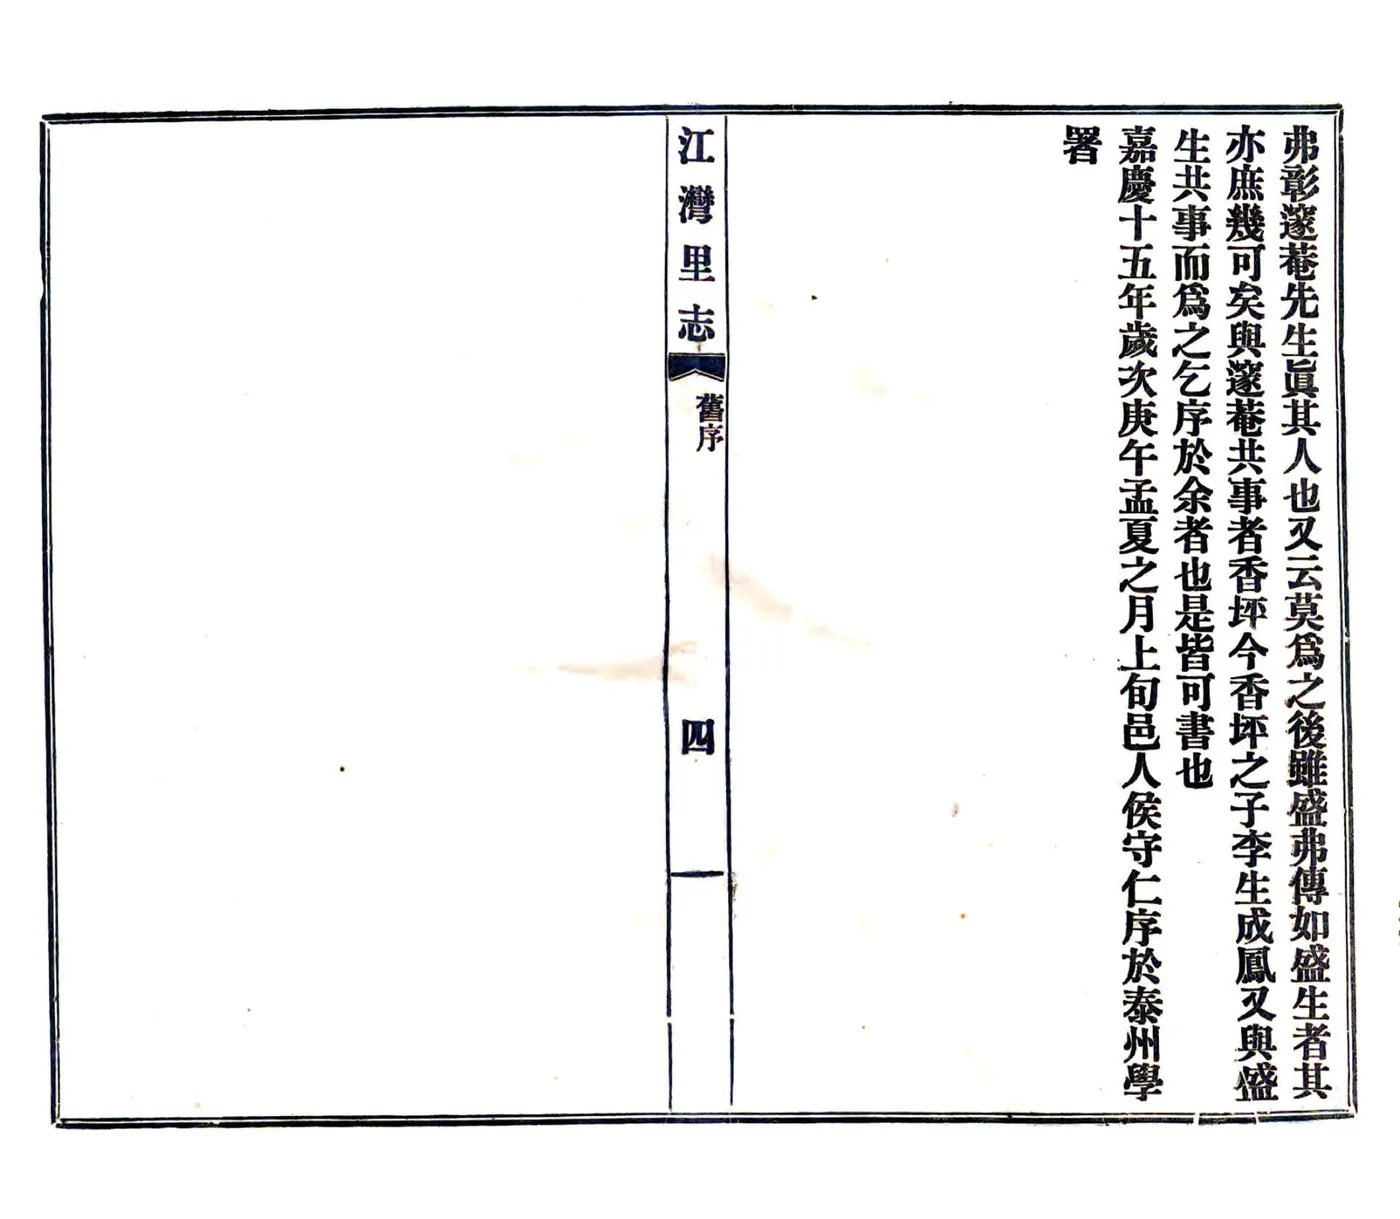 弗彰邃菴先生眞其人也又云莫爲之後雖盛弗傳如盛生者其
亦庶幾可矣與邃菴共事者香坪今香坪之子李生成鳳又與盛
生共事而爲之乞序於余者也是皆可書也
嘉慶十五年歲次庚午孟夏之月上旬邑人侯守仁序於泰州學
署
江灣里志
舊序
四